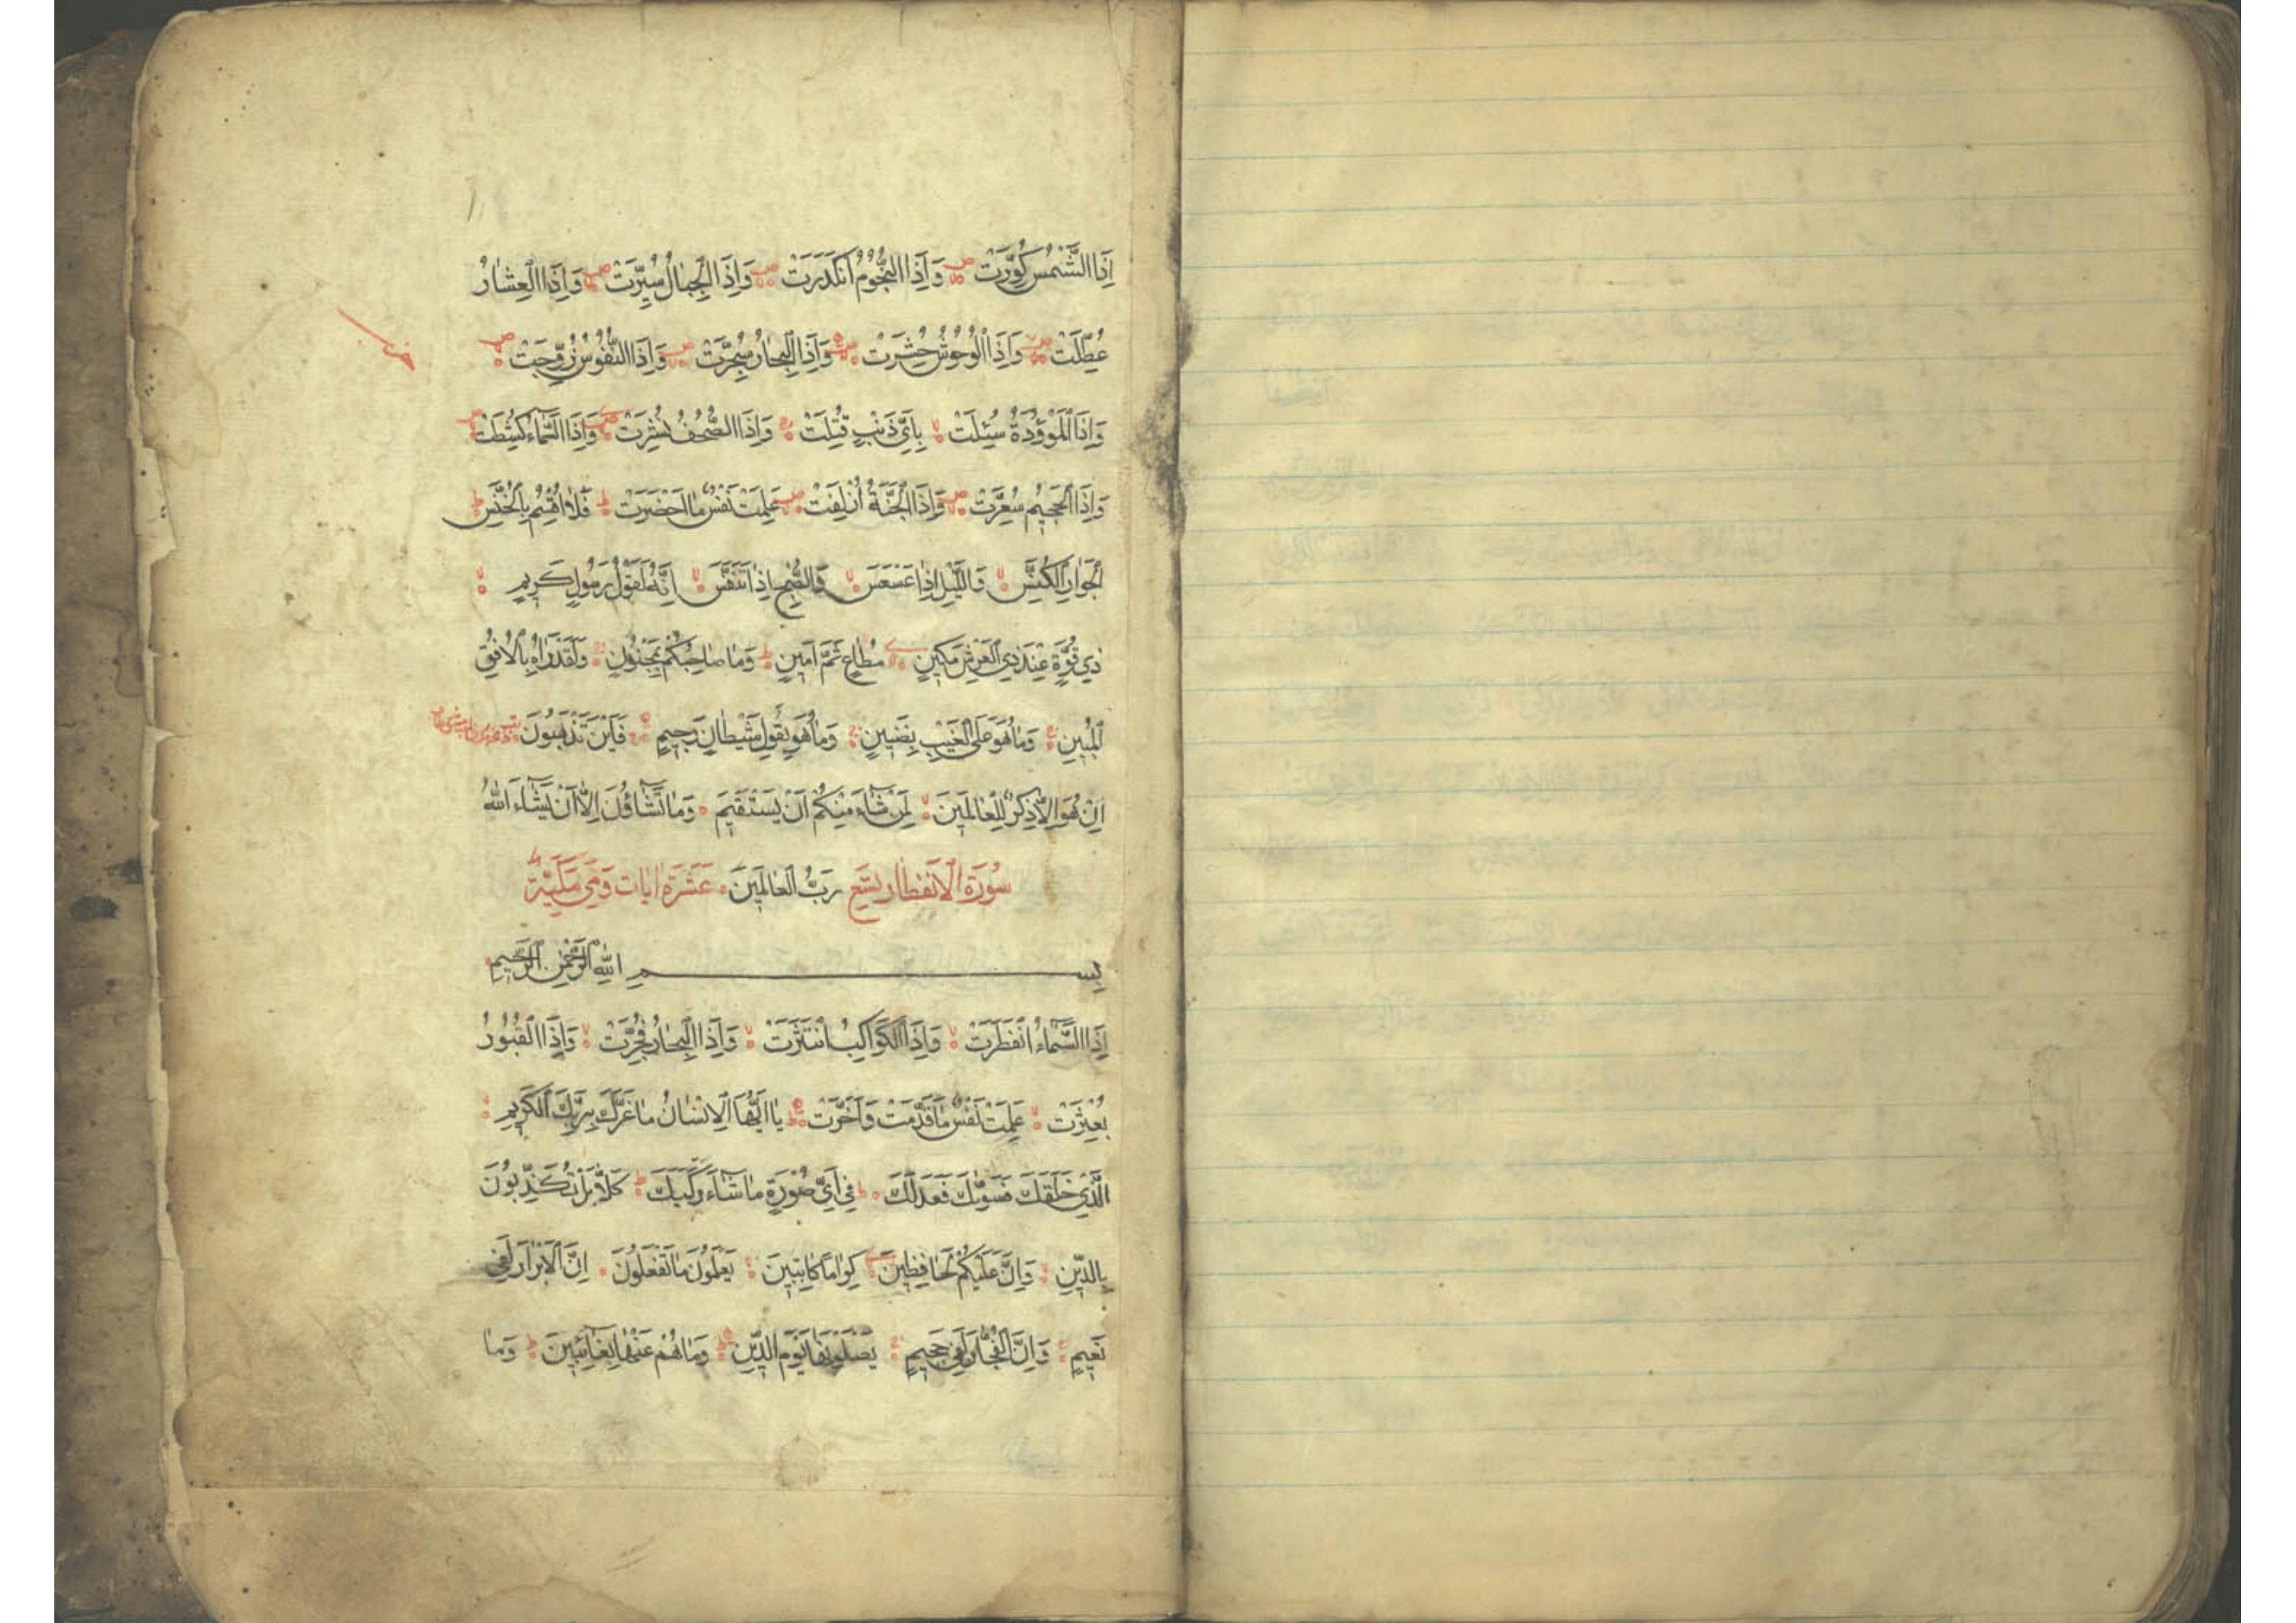 اِذَا الشَّمْسُ كُوِّرَتْ وَاِذَا النُّجُومُ انْكَدَرَتْ وَاِذَا الْجِبَالُ سُيِّرَتْ وَاِذَا الْعِشَارُ
عُطِّلَتْ وَاِذَا الْوُحُوشُ حُشِرَتْ وَاِذَا الْبِحَارُ سُجِّرَتْ وَاِذَا النُّفُوسُ زُوِّجَتْ
وَاِذَا الْمَوْؤُدَةُ سُئِلَتْ بِاَىِّ ذَنْبٍ قُتِلَتْ وَاِذَا الصُّحُفُ نُشِرَتْ وَاِذَا السَّمَاءُ كُشِطَتْ
وَاِذَا الْجَحِيمُ سُعِّرَتْ وَاِذَا الْجَنَّةُ اُزْلِفَتْ عَلِمَتْ نَفْسٌ مَا اَحْضَرَتْ فَلَا اُقْسِمُ بِالْخُنَّسِ
الْجَوَارِ الْكُنَّسِ وَالَّيْلِ اِذَا عَسْعَسَ وَالصُّبْحِ اِذَا تَنَفَّسَ اِنَّهُ لَقَوْلُ رَسُولٍ كَرِيمٍ
ذِي قُوَّةٍ عِنْدَ ذِي الْعَرْشِ مَكِينٍ مُطَاعٍ ثَمَّ اَمِينٍ وَمَا صَاحِبُكُمْ بِمَجْنُونٍ وَلَقَدْ رَاٰهُ بِالْاُفُقِ
الْمُبِينِ وَمَا هُوَ عَلَى الْغَيْبِ بِضَنِينٍ وَمَا هُوَ بِقَوْلِ شَيْطَانٍ رَجِيمٍ فَاَيْنَ تَذْهَبُونَ
اِنْ هُوَ اِلَّا ذِكْرٌ لِلْعَالَمِينَ لِمَنْ شَاءَ مِنْكُمْ اَنْ يَسْتَقِيمَ وَمَا تَشَاؤُنَ اِلَّا اَنْ يَشَاءَ اللّٰهُ
سُورَةُ الْاِنْفِطَارِ تِسْعَ رَبُّ الْعَالَمِينَ عَشَرَةَ اٰيَات وَهِيَ مَكِّيَّةٌ
بِسْمِ اللّٰهِ الرَّحْمٰنِ الرَّحِيمِ
اِذَا السَّمَاءُ انْفَطَرَتْ وَاِذَا الْكَوَاكِبُ انْتَثَرَتْ وَاِذَا الْبِحَارُ فُجِّرَتْ وَاِذَا الْقُبُورُ
بُعْثِرَتْ عَلِمَتْ نَفْسٌ مَا قَدَّمَتْ وَاَخَّرَتْ يَا اَيُّهَا الْاِنْسَانُ مَا غَرَّكَ بِرَبِّكَ الْكَرِيمِ
الَّذِي خَلَقَكَ فَسَوّٰيكَ فَعَدَلَكَ فِي اَىِّ صُورَةٍ مَا شَاءَ رَكَّبَكَ كَلَّا بَلْ تُكَذِّبُونَ
بِالدِّينِ وَاِنَّ عَلَيْكُمْ لَحَافِظِينَ كِرَامًا كَاتِبِينَ يَعْلَمُونَ مَا تَفْعَلُونَ اِنَّ الْاَبْرَارَ لَفِي
نَعِيمٍ وَاِنَّ الْفُجَّارَ لَفِي جَحِيمٍ يَصْلَوْنَهَا يَوْمَ الدِّينِ وَمَا هُمْ عَنْهَا بِغَائِبِينَ وَمَا